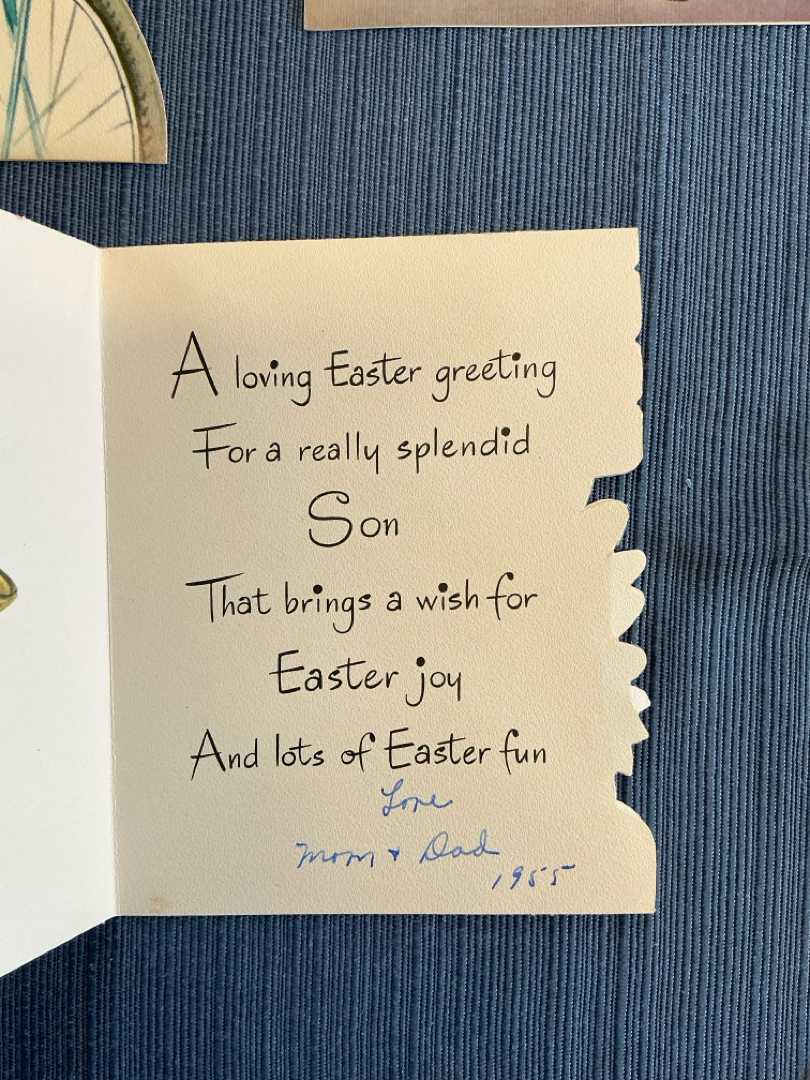 A loving Easter greeting
For a really splendid
Son
That brings a wish for
Easter joy
And lots of Easter fun
Love
Mom + Dad
1955